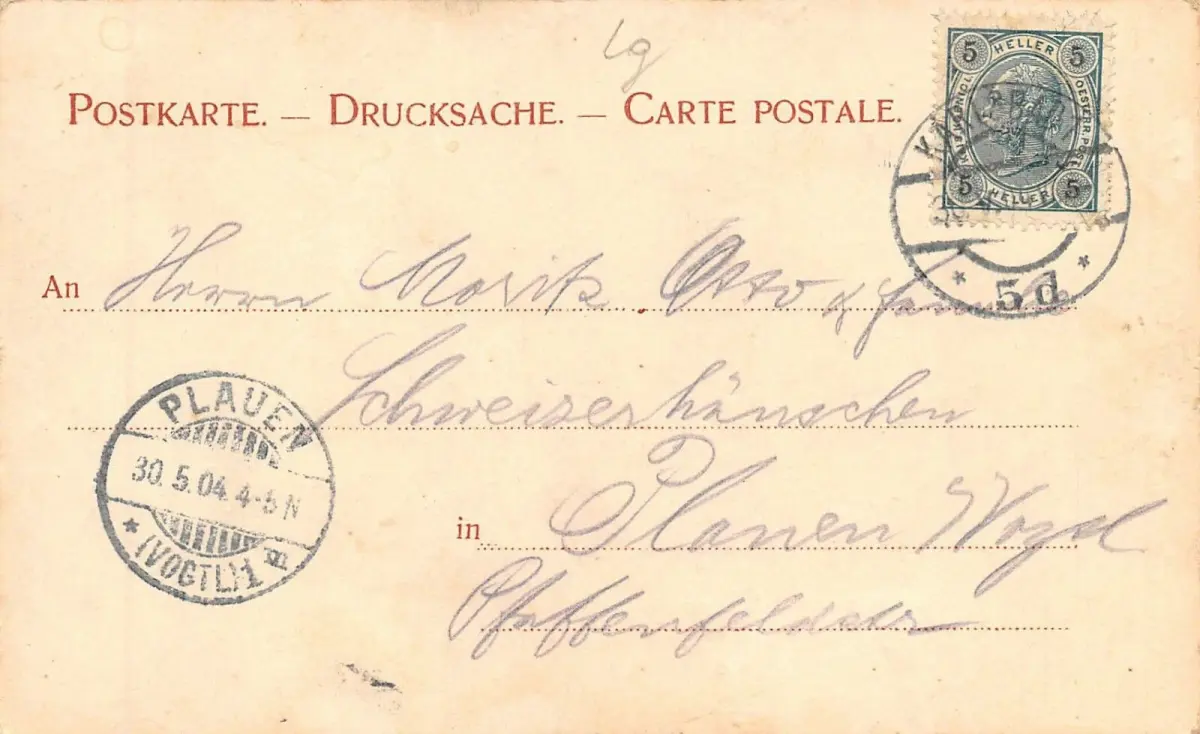 lg
POSTKARTE. — DRUCKSACHE. — CARTE POSTALE.
5 HELLER 5
KAIS. KÖNIGL. OESTERR. POST
5 HELLER 5
KARLSBAD
* 5d *
An Herrn Moritz Otto & Familie
Schweizerhänschen
PLAUEN
30.5.04. 4-5 N
* (VOGTL.) 1
in Plauen Vogtl